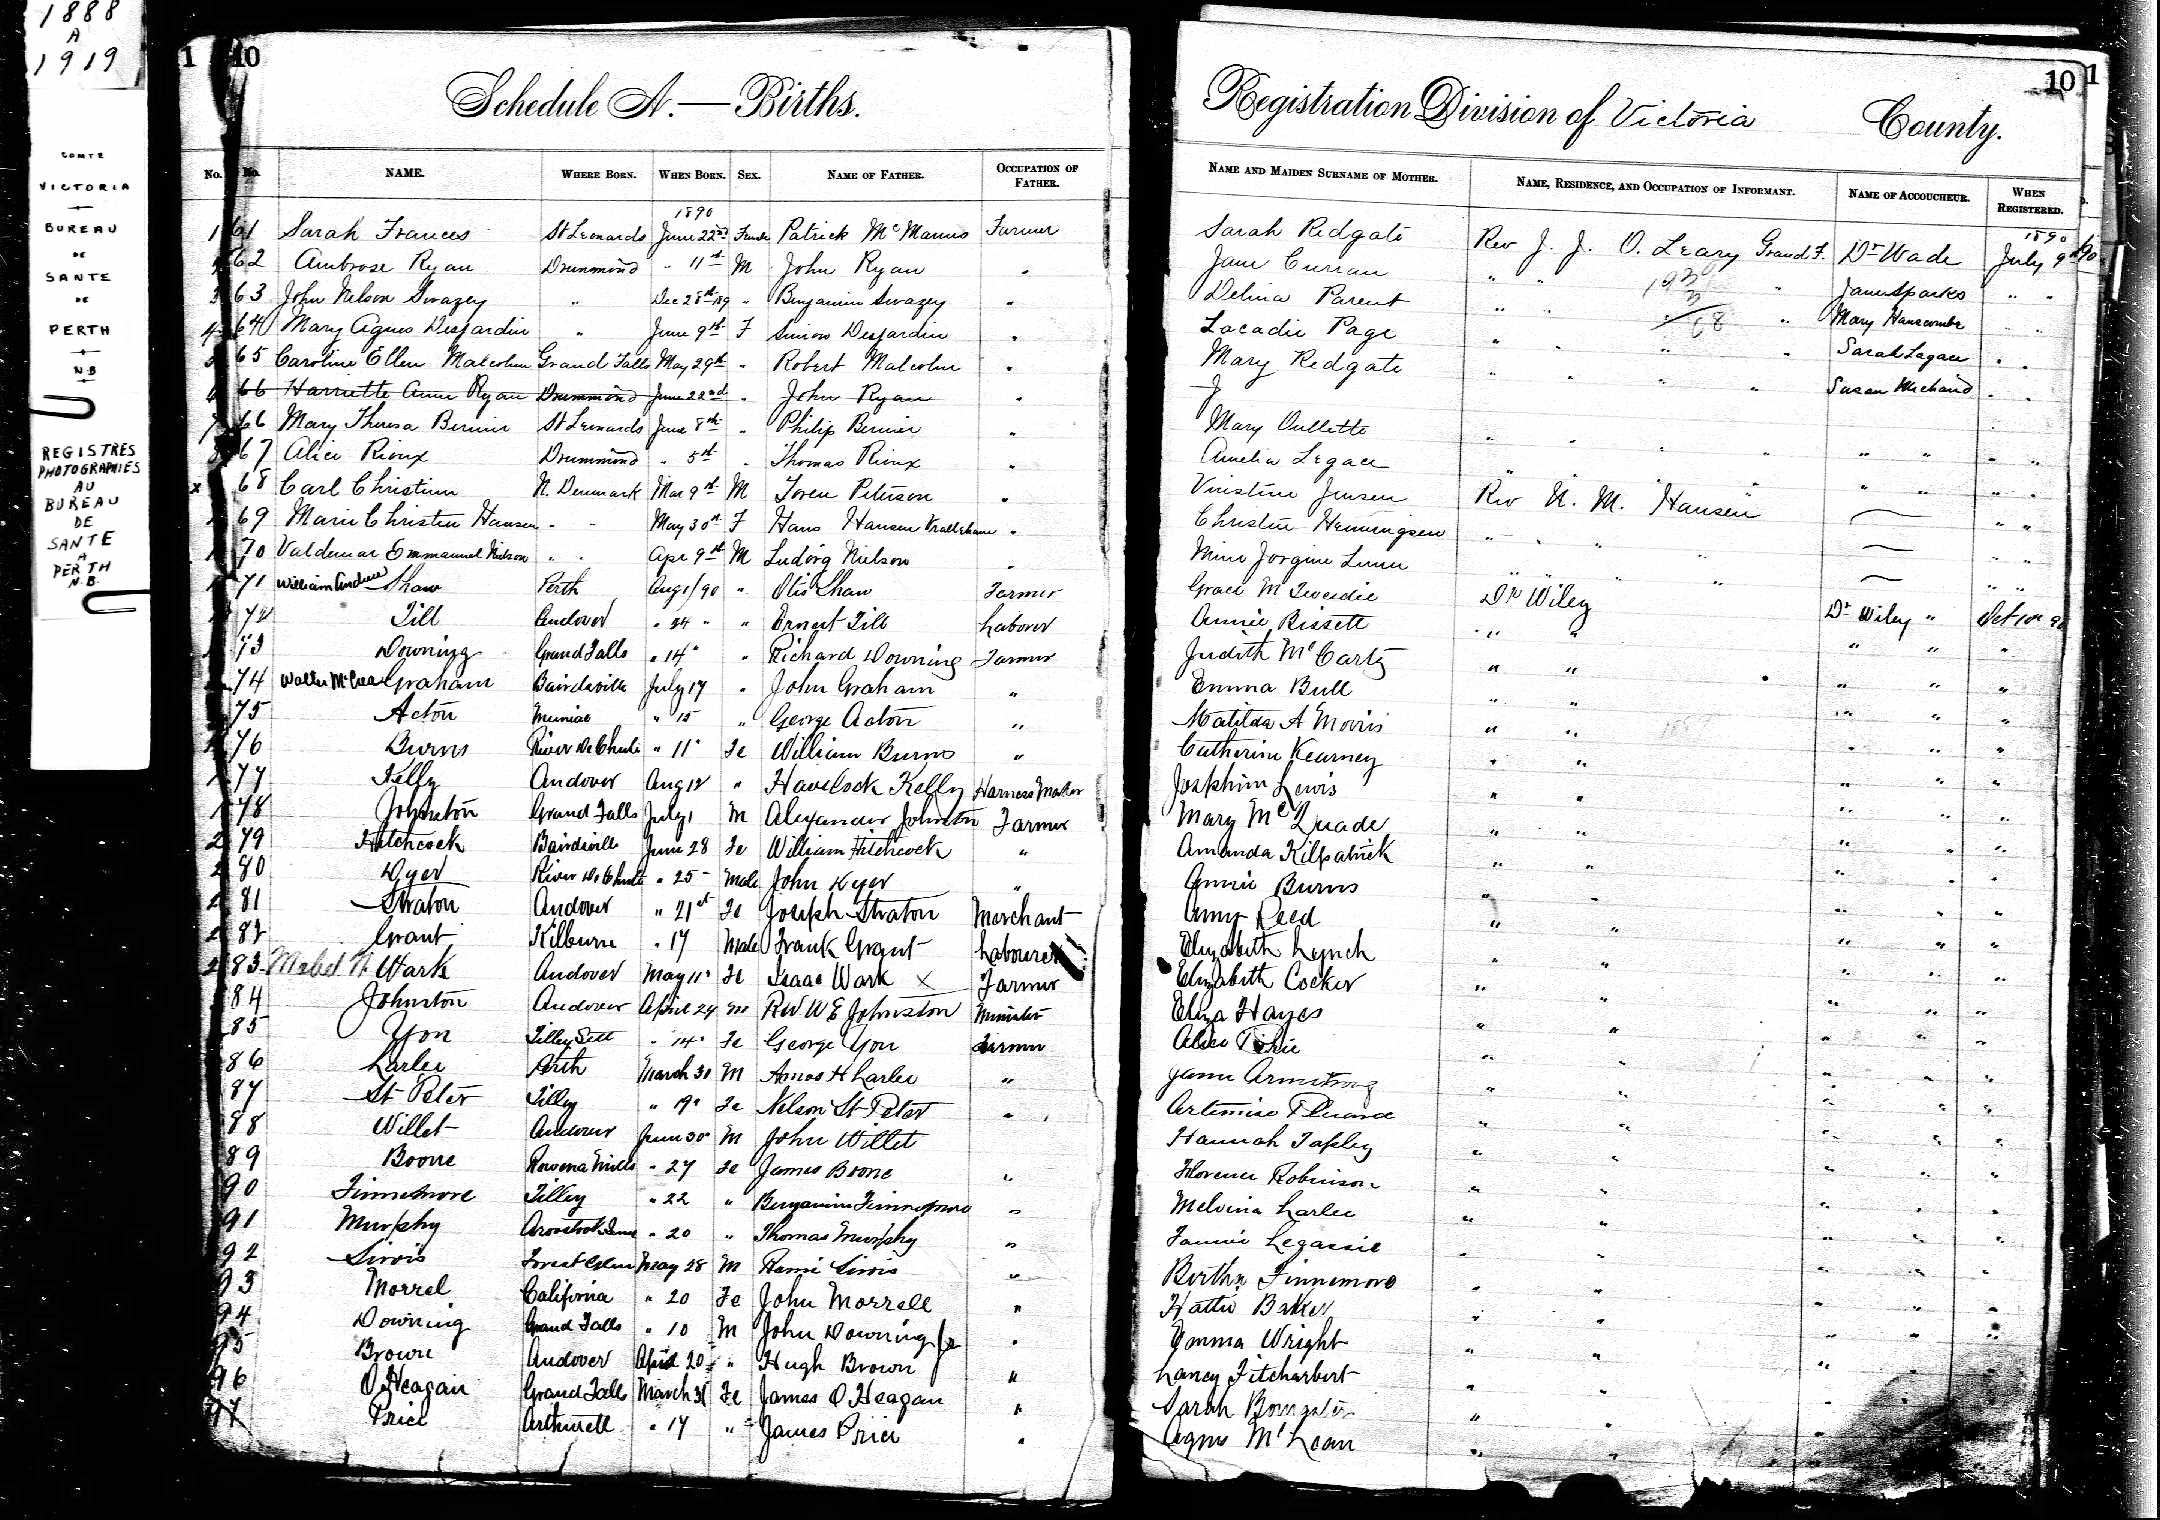 1888
A
1919
COMTE
VICTORIA
BUREAU
DE
SANTE
DE
PERTH
N.B
REGISTRES
PHOTOGRAPHIES
AU
BUREAU
DE
SANTE
A
PERTH
N.B.
1 10
Schedule A.—Births.
No. No. NAME. WHERE BORN. WHEN BORN. SEX. NAME OF FATHER. OCCUPATION OF FATHER.
1890
61 Sarah Frances St Leonards June 22nd Female Patrick McManus Farmer
62 Ambrose Ryan Drummond " 11th M John Ryan "
63 John Nelson Swazey " Dec 28th 189 " Benjamin Swazey "
64 Mary Agnes Desjardin " June 9th F Simon Desjardin "
65 Caroline Ellen Malcolm Grand Falls May 29th " Robert Malcolm "
66 Harriette Ann Ryan Drummond June 22nd " John Ryan "
66 Mary Theresa Bernier St Leonards June 8th " Philip Bernier "
67 Alice Rioux Drummond " 5th " Thomas Rioux "
x 68 Carl Christian N. Denmark Mar 9th M Soren Peterson "
69 Marie Christin Hansen " " May 30th F Hans Hansen "
70 Valdemar Emmanuel Nielson " " Apr 9th M Ludvig Nielson "
71 William Andrew Shaw Perth Aug 1/90 " Otis Shaw Farmer
72 Till Andover " 24 " " Ernest Till Laborer
73 Downing Grand Falls " 14 " " Richard Downing Farmer
74 Walter McCrea Graham Bairdsville July 17 " John Graham "
75 Acton Muniac " 15 " George Acton "
76 Burns River De Chute " 11 " Fe William Burns "
77 Kelly Andover Aug 12 " Havelock Kelly Harness Maker
78 Johnston Grand Falls July 1 M Alexander Johnston Farmer
79 Hitchcock Bairdsville June 28 Fe William Hitchcock "
80 Dyer River De Chute " 25 Male John Dyer "
81 Straton Andover " 21st Fe Joseph Straton Merchant
82 Grant Kilburne " 17 Male Frank Grant Labourer
83 Mabel N Wark Andover May 11 " Fe Isaac Wark x Farmer
84 Johnston Andover April 24 M Rev W E Johnston Minister
85 Yon Tilley Sett " 14 " Fe George Yon Farmer
86 Larlee Perth March 30 M Amos H Larlee "
87 St Peter Tilley " 19 " Fe Nelson St Peter "
88 Willet Andover June 30 M John Willet
89 Boone Rowena Mills " 27 Fe James Boone "
90 Finnemore Tilley " 22 " Benjamin Finnemore "
91 Murphy " 20 " Thomas Murphy "
92 Sirois Forest Glen May 28 M Remi Sirois "
93 Morrel California " 20 Fe John Morrell "
94 Downing Grand Falls " 10 M John Downing Jr "
95 Brown Andover April 20 " Hugh Brown "
96 O'Heagan Grand Falls March 31 Fe James O Heagan "
97 Price Arthurett " 17 " James Price "
10 1
Registration Division of Victoria County.
NAME AND MAIDEN SURNAME OF MOTHER. NAME, RESIDENCE, AND OCCUPATION OF INFORMANT. NAME OF ACCOUCHEUR. WHEN REGISTERED.
1890
Sarah Ridgate Rev J. J. O. Leary Grand F. Dr Wade July 9th
Jane Curran " " " Jane Sparks " "
Delina Parent " " " Mary Hanscombe " "
Locadie Page " " " " Sarah Lagace " "
Mary Ridgate " " " " Susan Michaud " "
Mary Oullette " " " " " " " "
Amelia Legace " " " " " "
Jensen Rev N. M. Hansen " "
Christin Henningsen " " " " " "
Mine Jorgine " " " " " "
Grace M Tweedie Dr Wiley Dr Wiley " Oct 10th 90
Annie Bissett " " " " "
Judith McCarty " " " " "
Emma Bull " " " " "
Matilda A Morris " " " " "
Catherine Kearney " " " " "
Josphine Lewis " " " " "
Mary McQuade " " " " "
Amanda Kilpatrick " " " " "
Annie Burns " " " " "
Amy Reed " " " " "
Elizabeth Lynch " " " " "
Elizabeth Cocker " " " " "
Eliza Hayes " " " " "
Alice " " " " "
Jamie Armstrong " " " " "
Artemise " " " " "
Hannah Tapley " " " " "
Florence Robinson " " " " "
Melvina Larlee " " " " "
Fannie Legassie " " " " "
Bertha Finnemore " " " " "
Hattie Baker " " " " "
Emma Wright " " " " "
Lancy Fitcharbert " " "
Sarah " "
Agnes McLean " "